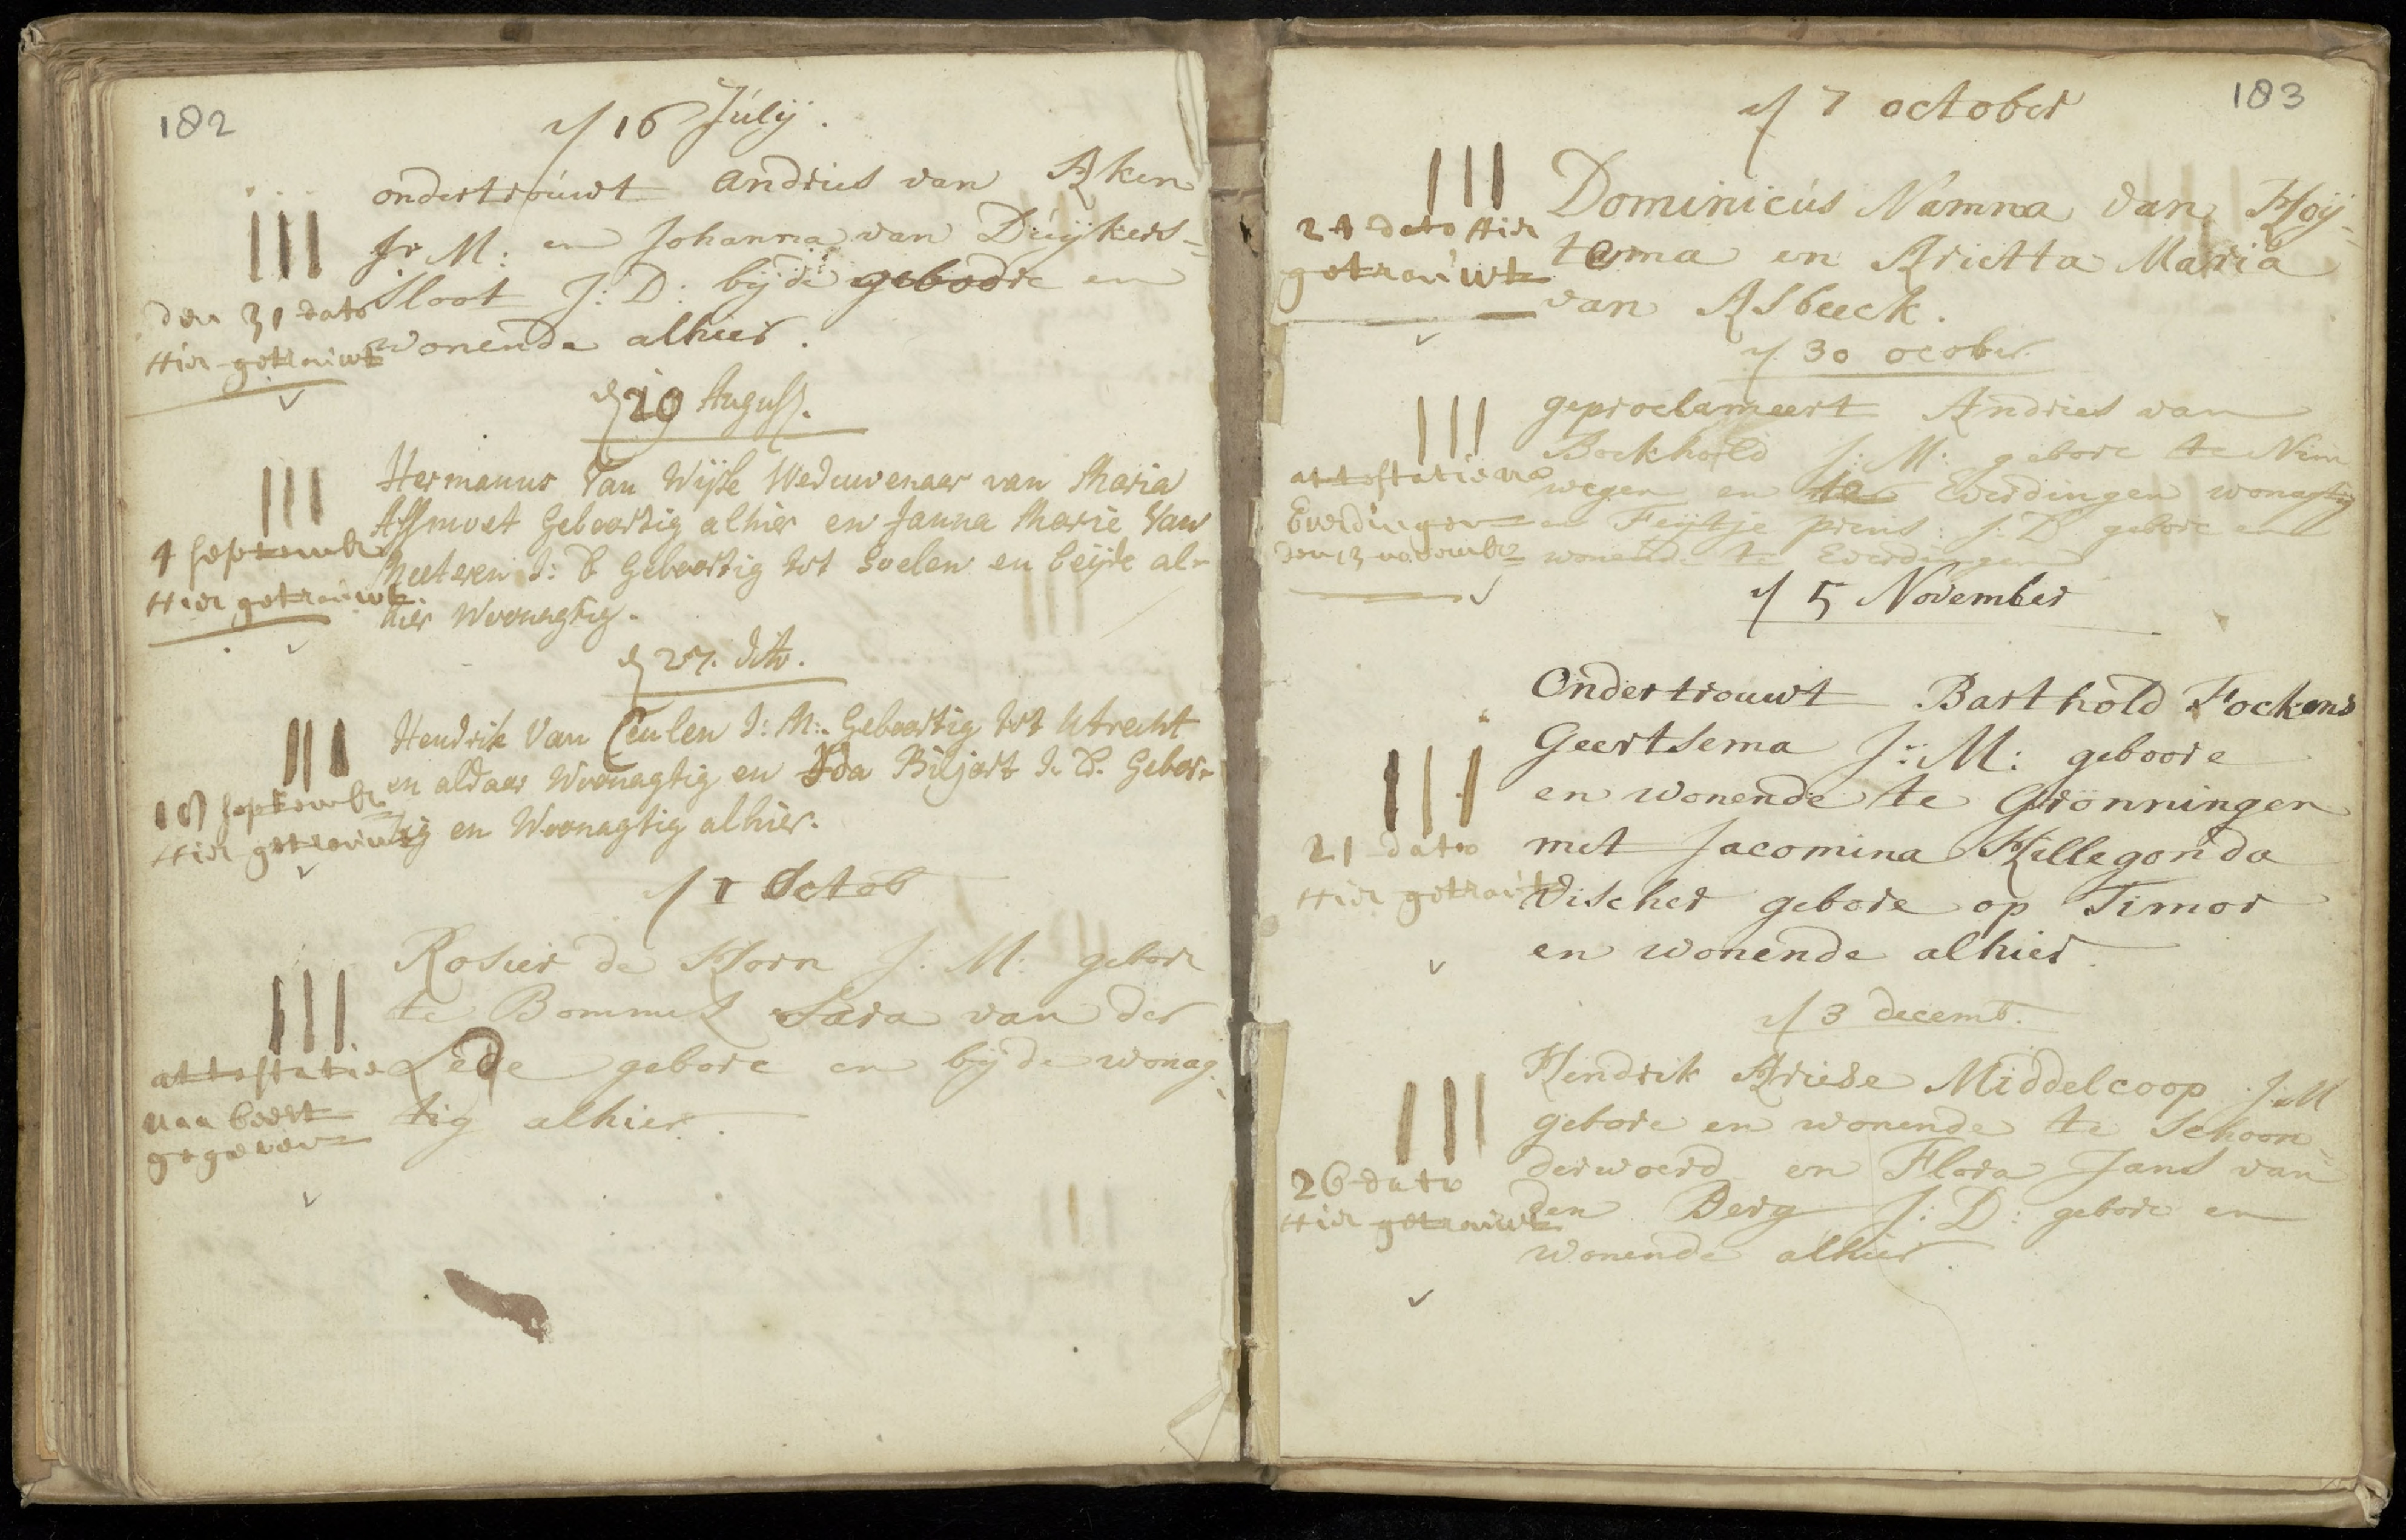 182
16 Julij.
ondertrouwt Andries van Aken
Jr M: en Johanna van Duijkers=
Sloot J: D: bijde geboore en
wonende alhier.
III
den 31 dato
Hier getrouwt
19 August.
Hermanus Van Wijke Weduwenaar van Maria
Assmoet Geboortig alhier en Janna Marie Van
Meeteren J: D Geboortig tot Soelen en beijde al-
hier Woonagtig.
III
4 september
Hier getrouwt.
27. dito.
Hendrik Van Ceulen J: M: Geboortig tot Utrecht
en aldaar Woonagtig en Ida Biljart J. D. Gebor-
tig en Woonagtig alhier.
III
18 september
Hier getrouwt
1 Octob
Rosier de Horn J: M: gebore
te Bommel Sara van der
Lede gebore en bijde wonag-
tig alhier.
III
attestatie
naa beest
gegeven
183
7 october
Dominicus Namna van Hoij=
tema en Arietta Maria
van Asbeeck.
III
21 dato Hier
getrouwt
30 ocober
geproclameert Andries van
Bockhold J: M: gebore te Nim
wegen en te Everdingen wonagtig
en Feijtje prins: J: D gebore en
wonende te Everdingen
III
attestatie na
Everdingen
den 13 november
5 November
Ondertrouwt Barthold Fockens
Geertsema Jr: M: geboore
en wonende te Gronningen
met Jacomina Hillegonda
Vischer gebore op Timor
en wonende alhier
III
21 dato
Hier getrout
3 decemb.
Hendrik Ariese Middelcoop J:M
gebore en wonende te Schoon=
derwoerd en Flora Jans van
den Berg J: D: gebore en
wonende alhier.
III
26 dato
Hier getrouwt